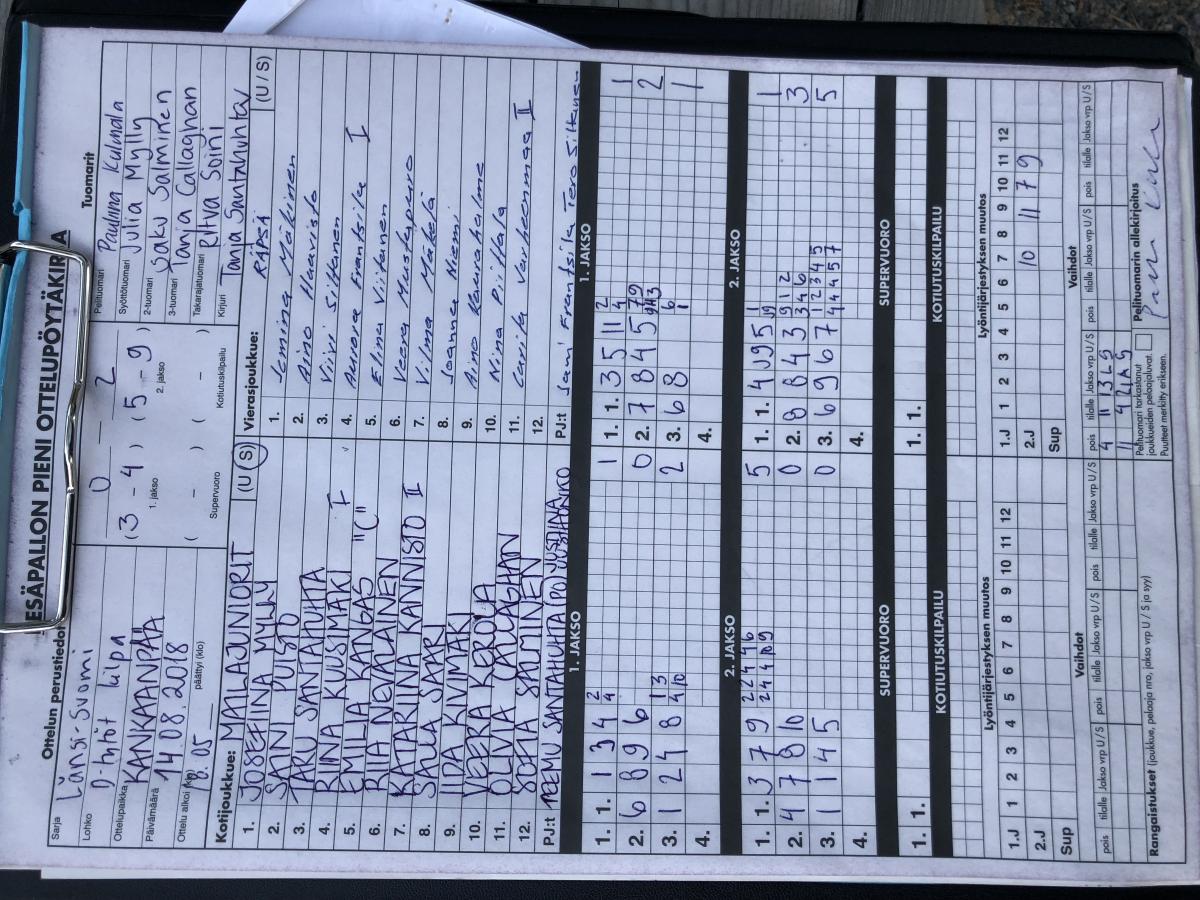 PESÄPALLON PIENI OTTELUPÖYTÄKIRJA
Ottelun perustiedot
Sarja Länsi-Suomi
Lohko D-tytöt kilpa
Ottelupaikka KANKAANPÄÄ
Päivämäärä 14.08.2018
Ottelu alkoi (klo) 18.05 päättyi (klo)
0 — 2
(3 - 4) (5 - 9)
1. jakso 2. jakso
( - ) ( - )
Supervuoro Kotiutuskilpailu
Tuomarit
Pelituomari Pauliina Kulmala
Syöttötuomari Julia Mylly
2-tuomari Saku Salminen
3-tuomari Tanja Callaghan
Takarajatuomari Ritva Soini
Kirjuri Tanja Santahuhta
Kotijoukkue: MAILAJUNIORIT (U / S)
1. JOSEFIINA MYLLY
2. SAINI PUISTO
3. TARU SANTAHUHTA
4. RIINA KUUSIMÄKI I
5. EMILIA KANGAS "C"
6. RIIA NEVATAINEN
7. KATARIINA KANNISTO II
8. SALLA SAARI
9. IIDA KIVIMÄKI
10. VEERA KEROLA
11. OLIVIA CALLAGHAN
12. SOFIA SALMINEN
PJ:t TEEMU SANTAHUHTA
Vierasjoukkue: RÄPSÄ (U / S)
1. Jemina Mäkinen
2. Aino Haavisto
3. Viivi Siltanen
4. Aurora Frantsila I
5. Elina Viitanen
6. Veera Mustapuro
7. Vilma Mäkelä
8. Joanna Niemi
9. Aino
10. Nina Piittala
11. II
12.
PJ:t Jami Frantsila, Tero Siltanen
1. JAKSO 1. JAKSO
1. 1. 1 3 4 2 4 1
2. 6 8 9 6 0
3. 1 2 4 8 1 3 4 10 2
4.
1. 1. 3 5 11 2 4 1
2. 7 8 4 5 2
3. 6 8 6 1 1
4.
2. JAKSO 2. JAKSO
1. 1. 3 7 9 2 2 4 4 6 2 4 4 10 9 5
2. 4 7 8 10 0
3. 1 1 4 5 0
4.
1. 1. 1
2. 8 8 4 3 9 1 2 3 4 6 3
3. 6 9 6 7 1 2 3 4 5 4 4 4 5 7 5
4.
SUPERVUORO SUPERVUORO
1. 1. 1. 1.
KOTIUTUSKILPAILU KOTIUTUSKILPAILU
Lyöntijärjestyksen muutos Lyöntijärjestyksen muutos
1.J 1 2 3 4 5 6 7 8 9 10 11 12
2.J
Sup
1.J 1 2 3 4 5 6 7 8 9 10 11 12
2.J 10 11 7 9
Sup
Vaihdot Vaihdot
pois tilalle Jakso vrp U/S pois tilalle Jakso vrp U/S pois tilalle Jakso vrp U/S
pois tilalle Jakso vrp U/S pois tilalle Jakso vrp U/S pois tilalle Jakso vrp U/S
4 11 1 3 L S
11 4 2 1 A S
Rangaistukset (joukkue, pelaaja nro, jakso vrp U / S ja syy)
Pelituomari tarkastanut
joukkueiden pelaajaluvat.
Puutteet merkitty erikseen.
Pelituomarin allekirjoitus